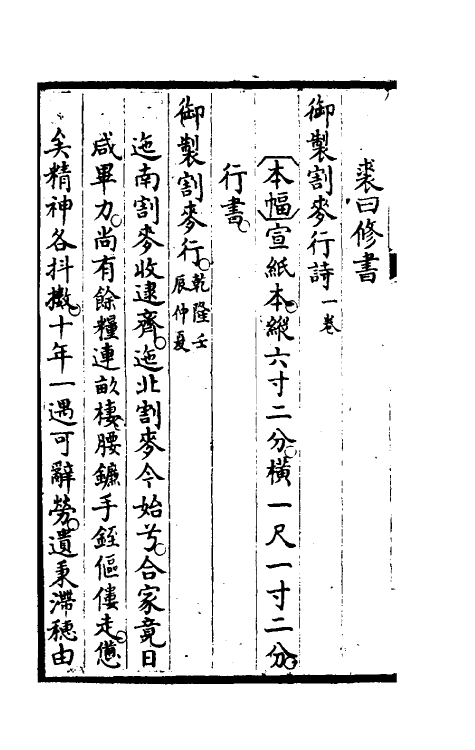 裘曰修書
御製割麥行詩一卷
〔本幅〕宣紙本。縱六寸二分。橫一尺一寸二分。
行書。
御製割麥行。乾隆壬辰仲夏
迤南割麥收逮齊。迤北割麥今始兮。合家竟日
咸畢力。尚有餘糧連畝棲。腰鐮手銍傴僂走。憊
矣精神各抖擻。十年一遇可辭勞。遺秉滯穗由